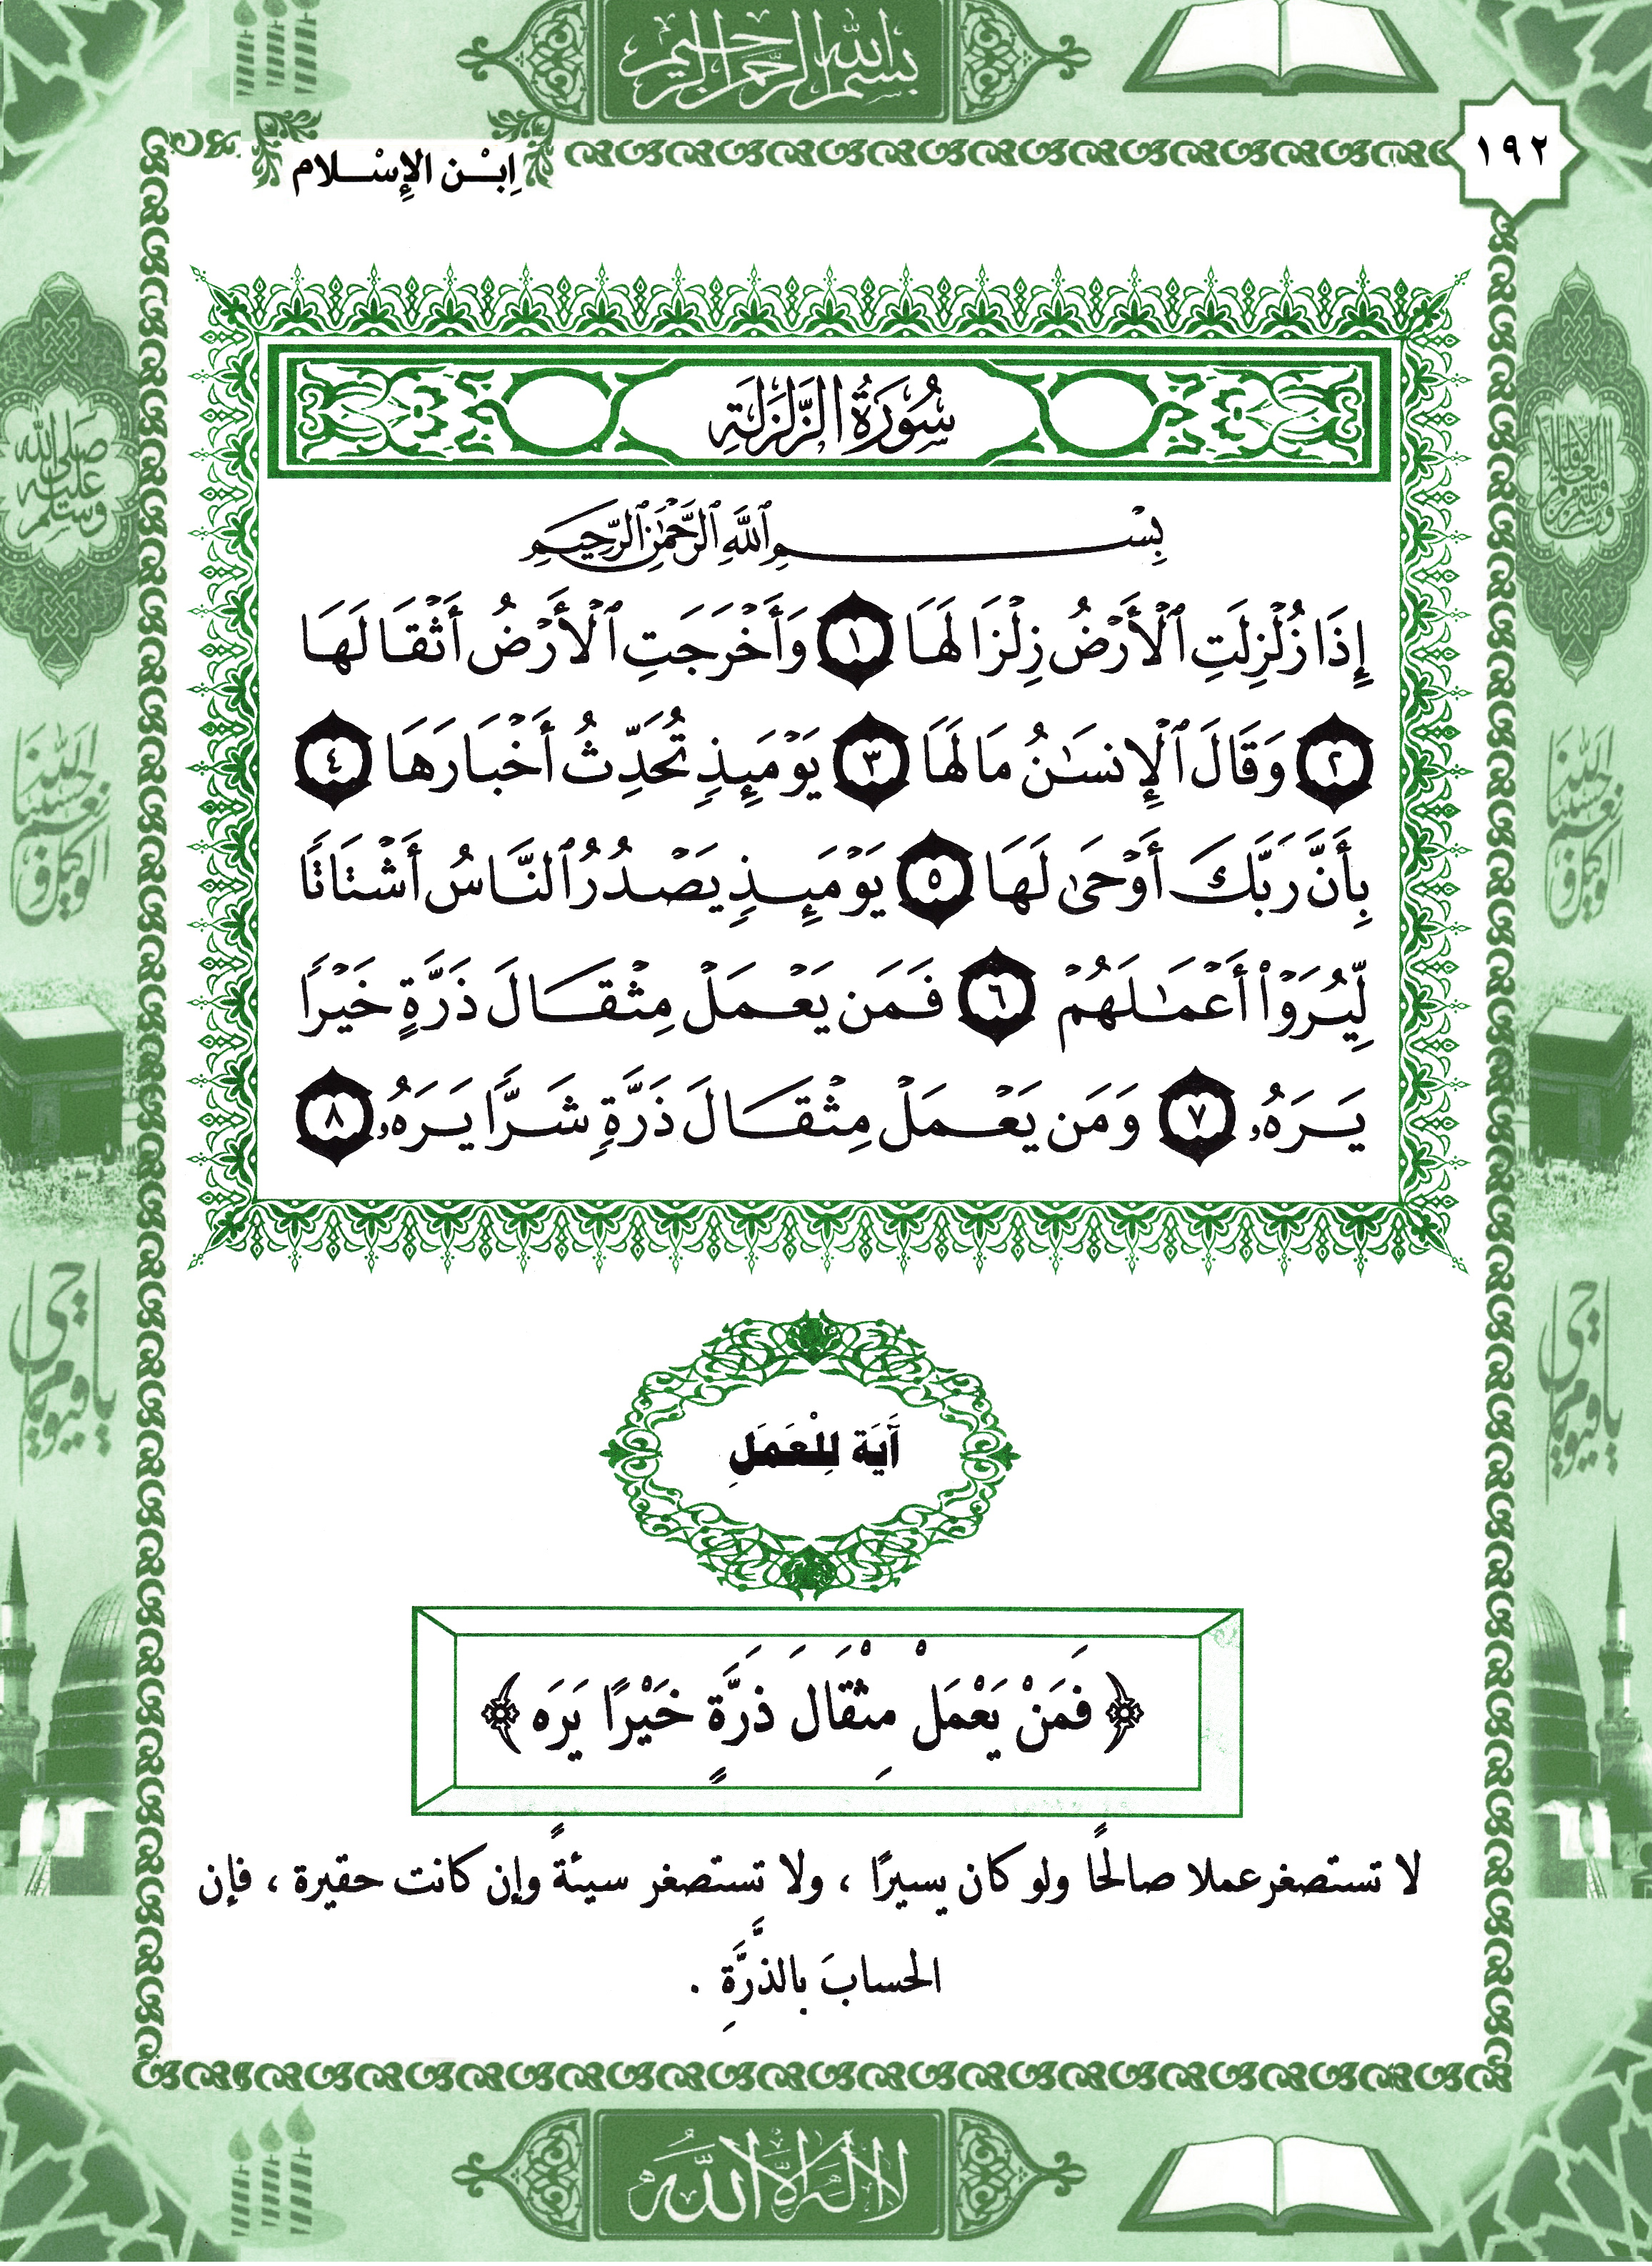 بسم الله الرحمن الرحيم
١٩٢
اِبْـن الإِسْـلام
سُورَةُ الزَّلْزَلَةِ
بِسْمِ ٱللَّهِ ٱلرَّحْمَٰنِ ٱلرَّحِيمِ
إِذَا زُلْزِلَتِ ٱلْأَرْضُ زِلْزَالَهَا ١ وَأَخْرَجَتِ ٱلْأَرْضُ أَثْقَالَهَا
٢ وَقَالَ ٱلْإِنسَٰنُ مَا لَهَا ٣ يَوْمَئِذٍ تُحَدِّثُ أَخْبَارَهَا ٤
بِأَنَّ رَبَّكَ أَوْحَىٰ لَهَا ٥ يَوْمَئِذٍ يَصْدُرُ ٱلنَّاسُ أَشْتَاتًا
لِّيُرَوْا۟ أَعْمَٰلَهُمْ ٦ فَمَن يَعْمَلْ مِثْقَالَ ذَرَّةٍ خَيْرًا
يَرَهُۥ ٧ وَمَن يَعْمَلْ مِثْقَالَ ذَرَّةٍ شَرًّا يَرَهُۥ ٨
آيَة لِلْعَمَلِ
﴿ فَمَنْ يَعْمَلْ مِثْقَالَ ذَرَّةٍ خَيْرًا يَرَه ﴾
لا تستصغر عملا صالحًا ولو كان يسيرًا ، ولا تستصغر سيئةً وإن كانت حقيرة ، فإن
الحسابَ بالذَّرَّةِ .
صلى الله عليه وسلم
حسبنا الله ونعم الوكيل
يا حي يا قيوم
حسبنا الله ونعم الوكيل
يا حي يا قيوم
لا إله إلا الله